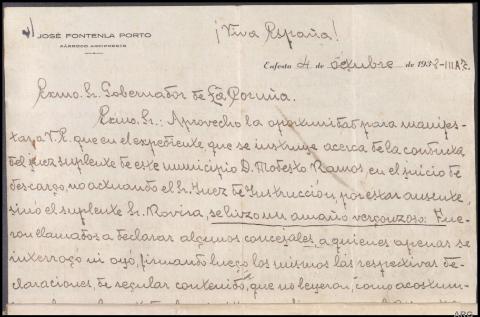 JOSÉ FONTENLA PORTO
PÁRROCO ARCIPRESTE
¡Viva España!
4 de octubre de 1938-III A.T.
Exmo. Sr. Gobernador de La Coruña.
Exmo. Sr.: Aprovecho la oportunidad para manifes-
tar a V.E. que en el expediente que se instruye acerca de la conducta
del juez suplente de este municipio D. Modesto Ramos, en el juicio de
descargo, no actuando el Sr. Juez de Instrucción, por estar ausente,
sinó el suplente Sr. Rovira, se hizo un amaño vergonzoso: Fue-
ron llamados a declarar algunos concejales, a quienes apenas se
interrogó ni oyó, firmando luego los mismos las respectivas de-
claraciones, de regular contenido, que no leyeron, como acostum-
ARG